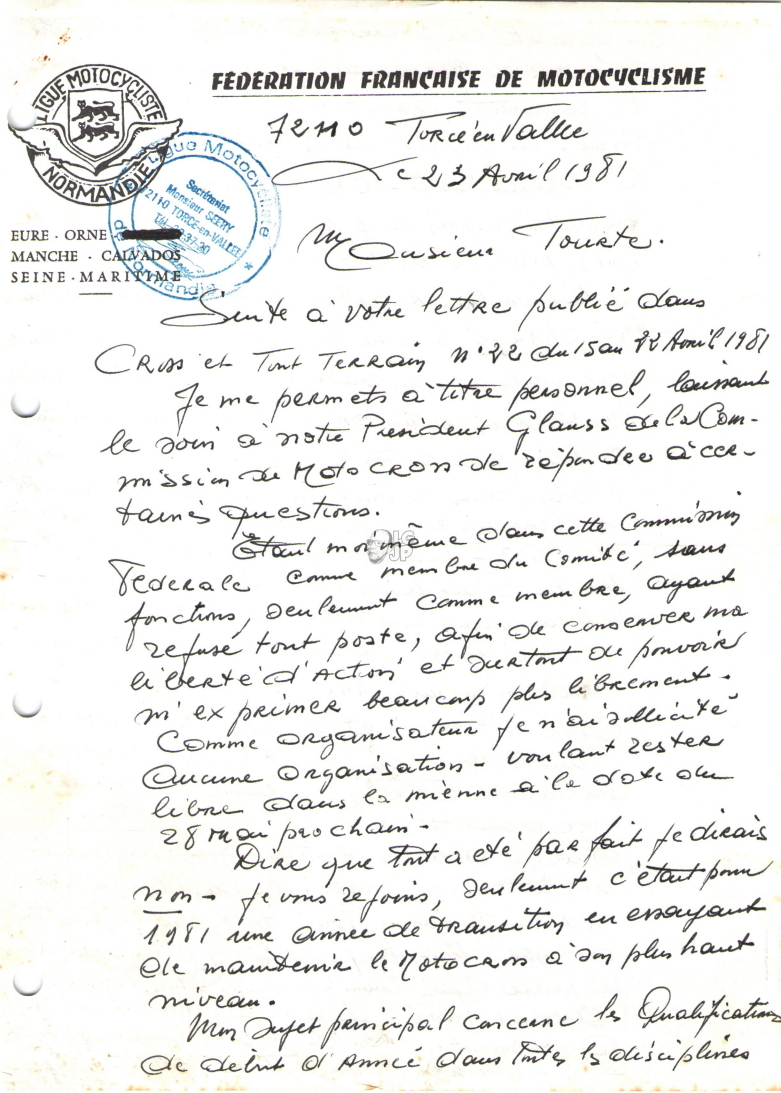 FÉDÉRATION FRANÇAISE DE MOTOCYCLISME
LIGUE MOTOCYCLISTE
NORMANDIE
Ligue Motocycliste de Normandie
Secrétariat
Monsieur SEERY
72110 TORCE-en-VALLEE
EURE · ORNE
MANCHE · CALVADOS
SEINE · MARITIME
72110 Torcé en Vallée
Le 23 Avril 1981
Monsieur Tourte.
Suite à votre lettre publié dans
CROSS et Tout Terrain n° 22 du 15 au 22 Avril 1981
Je me permets à titre personnel, laissant
le soin à notre President Glauss de la Com-
mission de Motocross de répondre à cer-
taines questions.
Étant moi même dans cette Commission
Federale comme membre du Comité, sans
fonctions, seulement comme membre, ayant
refusé tout poste, afin de conserver ma
liberté d'Action et surtout de pouvoir
m'exprimer beaucoup plus librement.
Comme organisateur je n'ai sollicité
Aucune organisation - voulant rester
libre dans la mienne à la date du
28 mai prochain -
Dire que tout a été parfait je dirais
non - je vous rejoins, seulement c'était pour
1981 une année de transition en essayant
de maintenir le Motocross à son plus haut
niveau.
Mon sujet principal concerne les Qualifications
de debut d'Année dans toutes les disciplines